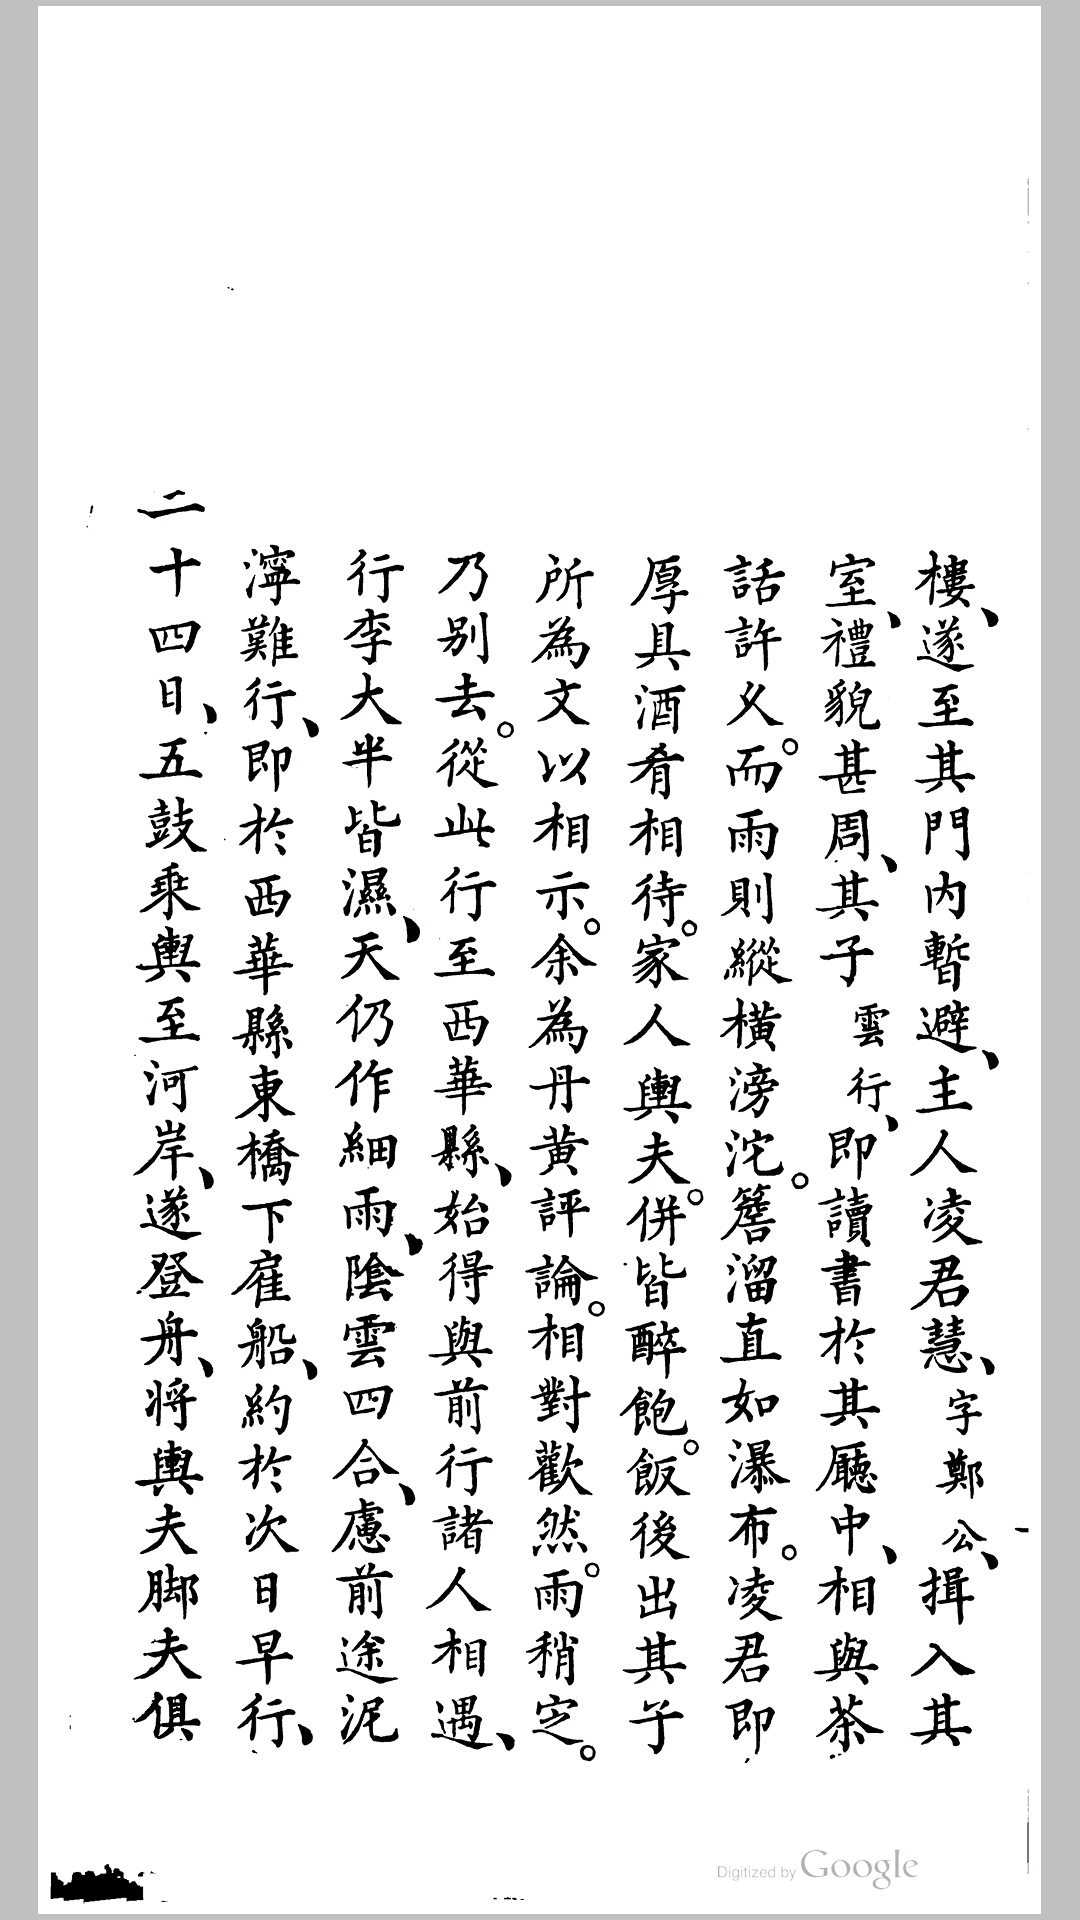 樓、遂至其門內暫避、主人凌君慧、字鄭公、揖入其
室、禮貌甚周、其子雲行、即讀書於其廳中、相與茶
話許久。而雨則縱橫滂沱。簷溜直如瀑布。凌君即
厚具酒肴相待。家人輿夫。併皆醉飽。飯後出其子
所為文以相示。余為丹黃評論。相對歡然。雨稍定。
乃别去。從此行至西華縣、始得與前行諸人相遇、
行李大半皆濕、天仍作細雨、陰雲四合、慮前途泥
濘難行、即於西華縣東橋下雇船、約於次日早行、
二十四日、五鼓乘輿至河岸、遂登舟、將輿夫脚夫俱
Digitized by Google